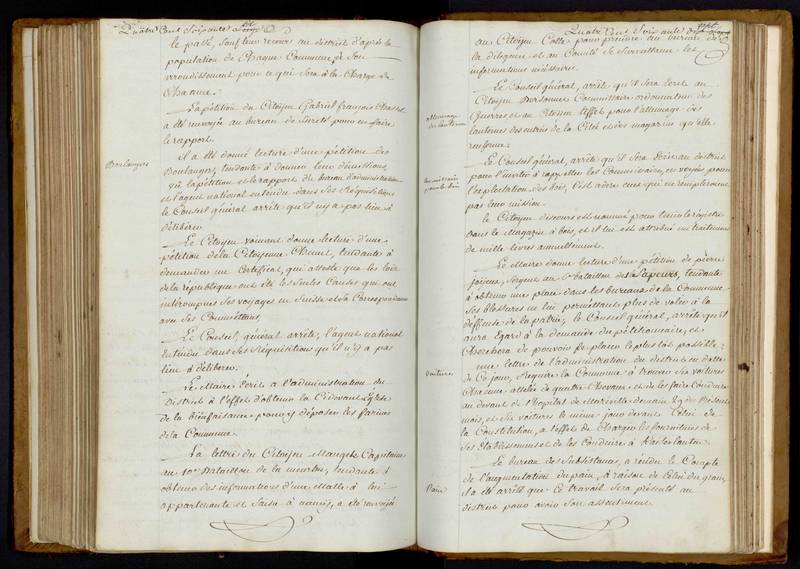 Quatre Cent Soixante
le passé, sauf leur recours au district d'après la
population de Chaque Commune de Son
arrondissement pour ce qui sera à la Charge de
Chacune.
La pétition du Citoyen Gabriel François
a été renvoyée au bureau de Sureté pour en faire
le rapport.
Boulangers
il a été donné lecture d'une pétition des
Boulangers, tendante à donner leur démission,
vû la pétition et le rapport du bureau d'administration
et l'agent national entendu dans ses Réquisitions
le Conseil général arrête qu'il n'y a pas lieu à
délibérer
Le Citoyen donne lecture d'une
pétition de la Citoyenne tendante à
demander un Certificat, qui atteste que les loix
de la république ont été les Seules Causes qui ont
interrompus ses voyages en Suisse et sa Correspondance
avec ses Commettans,
Le Conseil, général arrête, l'agent national
Entendu dans ses Réquisitions qu'il n'y a pas
lieu à délibérer.
Le Maire Ecrit a l'administration du
District à l'effet d'obtenir la Cidevant Eglise
de la bienfaisance pour y déposer les farines
de la Commune.
La lettre du Citoyen Mangel, Capitaine
au 10e Bataillon de la meurthe, tendante à
obtenir des informations d'une Malle à lui
appartenante et Saisie à nancy, a été renvoyée
Quatre Cent Soixante sept
au Citoyen Colle pour prendre au bureau de
la diligence et au Comité de Surveillance les
informations nécéssaires.
allumage
Le Conseil général, arrête qu'il sera écrit au
Citoyen Commissaire ordonnateur des
Guerres et au Citoyen pour l'allumage des
lanternes des entrés de la Cité et des magazins qu'elle
renferme.
Le Conseil général, arrête qu'il sera écrit au district
pour l'inviter à rappeller les Commissaires envoyés pour
l'exploitation des bois, c'est adire ceux qui ne remplissent
pas leur mission.
le Citoyen est nommé pour tenir le registre
dans le Magazin à bois, et il lui est attribué un traitement
de mille livres annuellement.
Le Maire donne lecture d'une pétition de pierre
Sergent au Bataillon des Sapeurs, tendante
à obtenir une place dans les bureaux de la Commune
Ses blessures ne lui permettant plus de voler à la
deffense de la patrie; le Conseil général, arrête qu'il
aura égard à la demande du pétitionnaire, et
cherchera de pouvoir le placer le plus tôt possible.
Voitures
une lettre de l'administration du district en datte
de Ce jour, Requière la Commune à trouver six voitures
Chacune attelée de quatre Chevaux et de les faire Conduire
au devant de l'hopital de Maréville demain 29 du Présent
mois, et six voitures le même jour devant Celui de
la Constitution, a l'effet de Charger les fournitures de
ses Etablissements et de les Conduire à
Pain
Le bureau des Subsistances, a rendu le Compte
de l'augmentation du pain, à raison de Celui du grain,
il a été arrêté que Ce travail sera présenté au
district pour avoir son assentiment.